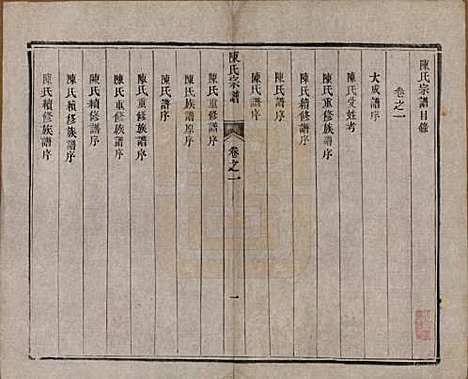 陳氏宗譜目錄
卷之一
大成譜序
陳氏受姓考
陳氏重修族譜序
陳氏續修譜序
陳氏譜序
陳氏譜序
陳氏宗譜
卷之一
一
陳氏重修譜序
陳氏族譜原序
陳氏譜序
陳氏重修族譜序
陳氏重修族譜序
陳氏續修譜序
陳氏續修族譜序
陳氏續修族譜序